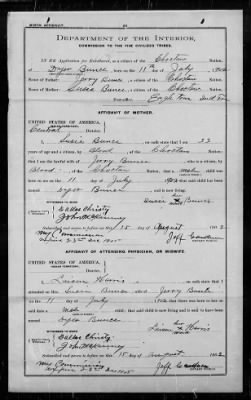 BIRTH AFFIDAVIT.
DEPARTMENT OF THE INTERIOR,
COMMISSION TO THE FIVE CIVILIZED TRIBES.
IN RE Application for Enrollment, as a citizen of the Choctaw Nation,
of Bunce, born on the 11th day of July, 1902
Name of Father: Jerry Bunce a citizen of the Choctaw Nation.
Name of Mother: Susie Bunce a citizen of the Choctaw Nation.
Post-office Eagle Town Ind Ter
AFFIDAVIT OF MOTHER.
UNITED STATES OF AMERICA,
INDIAN TERRITORY,
Central District.
I, Susie Bunce, on oath state that I am 22
years of age and a citizen, by Blood, of the Choctaw Nation;
that I am the lawful wife of Jerry Bunce, who is a citizen, by
Blood, of the Choctaw Nation; that a male child was
born to me on 11 day of July, 1902, that said child has been
named Bunce, and is now living.
her
Susie x Bunce
mark
WITNESSES TO MARK:
Dallas Christy
John McKinney
Subscribed and sworn to before me this 15 day of August, 1902
My Commission
Expires 23rd Dec 1905
Jeff
NOTARY PUBLIC.
AFFIDAVIT OF ATTENDING PHYSICIAN, OR MIDWIFE.
UNITED STATES OF AMERICA,
INDIAN TERRITORY,
District.
I, Harris, a, on oath state that I
attended on Mrs. Susie Bunce, wife of Jerry Bunce on the
11 day of July, 1902, that there was born to her on
said date a male child; that said child is now living and is said to have been
named Bunce
her
x Harris
mark
WITNESSES TO MARK:
Dallas Christy
John McKinney
Subscribed and sworn to before me this 15 day of August, 1902
My Commission
Expires 23 Dec 1905
Jeff
NOTARY PUBLIC.